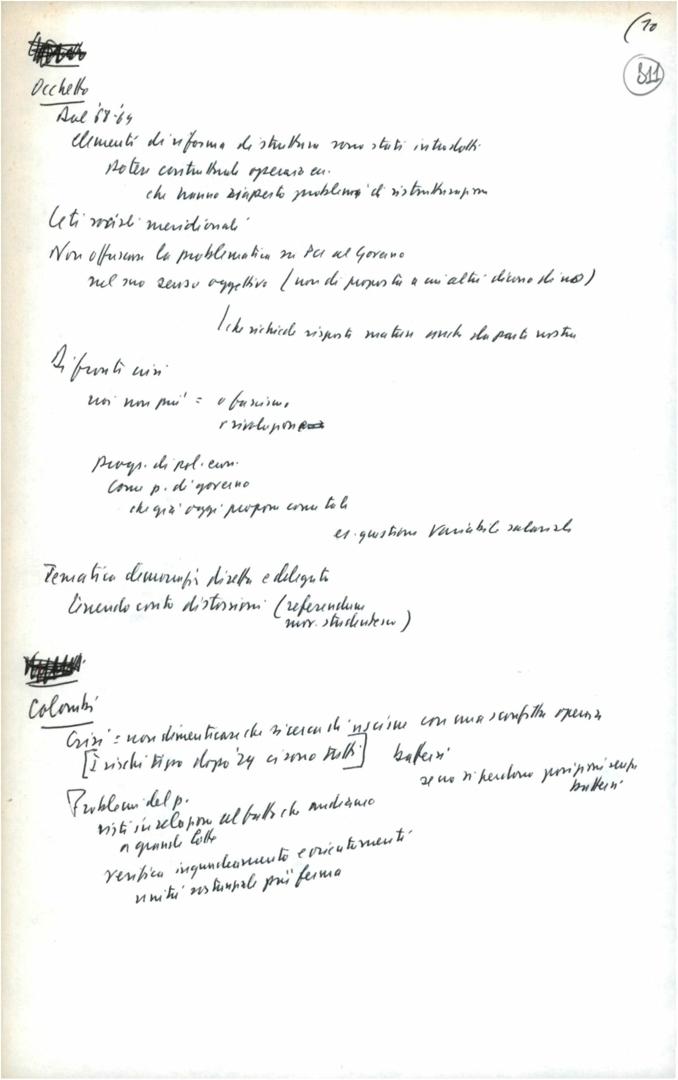 (10
311
Occhetto
Dal '68-'69
elementi di riforma di struttura sono stati introdotti
potere contrattuale operaio ecc.
che hanno riaperto problemi di ristrutturazione
Ceti sociali meridionali
Non offuscare la problematica su PCI al Governo
nel suo senso oggettivo (non di proposta a cui altri dicono di no)
che richiede risposte mature anche da parte nostra
Di fronte crisi
noi non più = o fascismo
o rivoluzione
Progr. di pol. econ.
come p. di governo
che già oggi propone come tale
es. questione variabile salariale
Tematica democrazia diretta e delegata
tenendo conto distorsioni (referendum
mov. studentesco)
Colombi
Crisi = non dimenticare che si cerca di uscirne con una sconfitta operaia
[I rischi tipo dopo '29 ci sono tutti] battersi
se no si perdono posizioni senza
battersi
Problemi del p.
visti in relazione al fatto che andiamo
a grandi lotte
verifica inquadramento e orientamenti
unità sostanziale più ferma